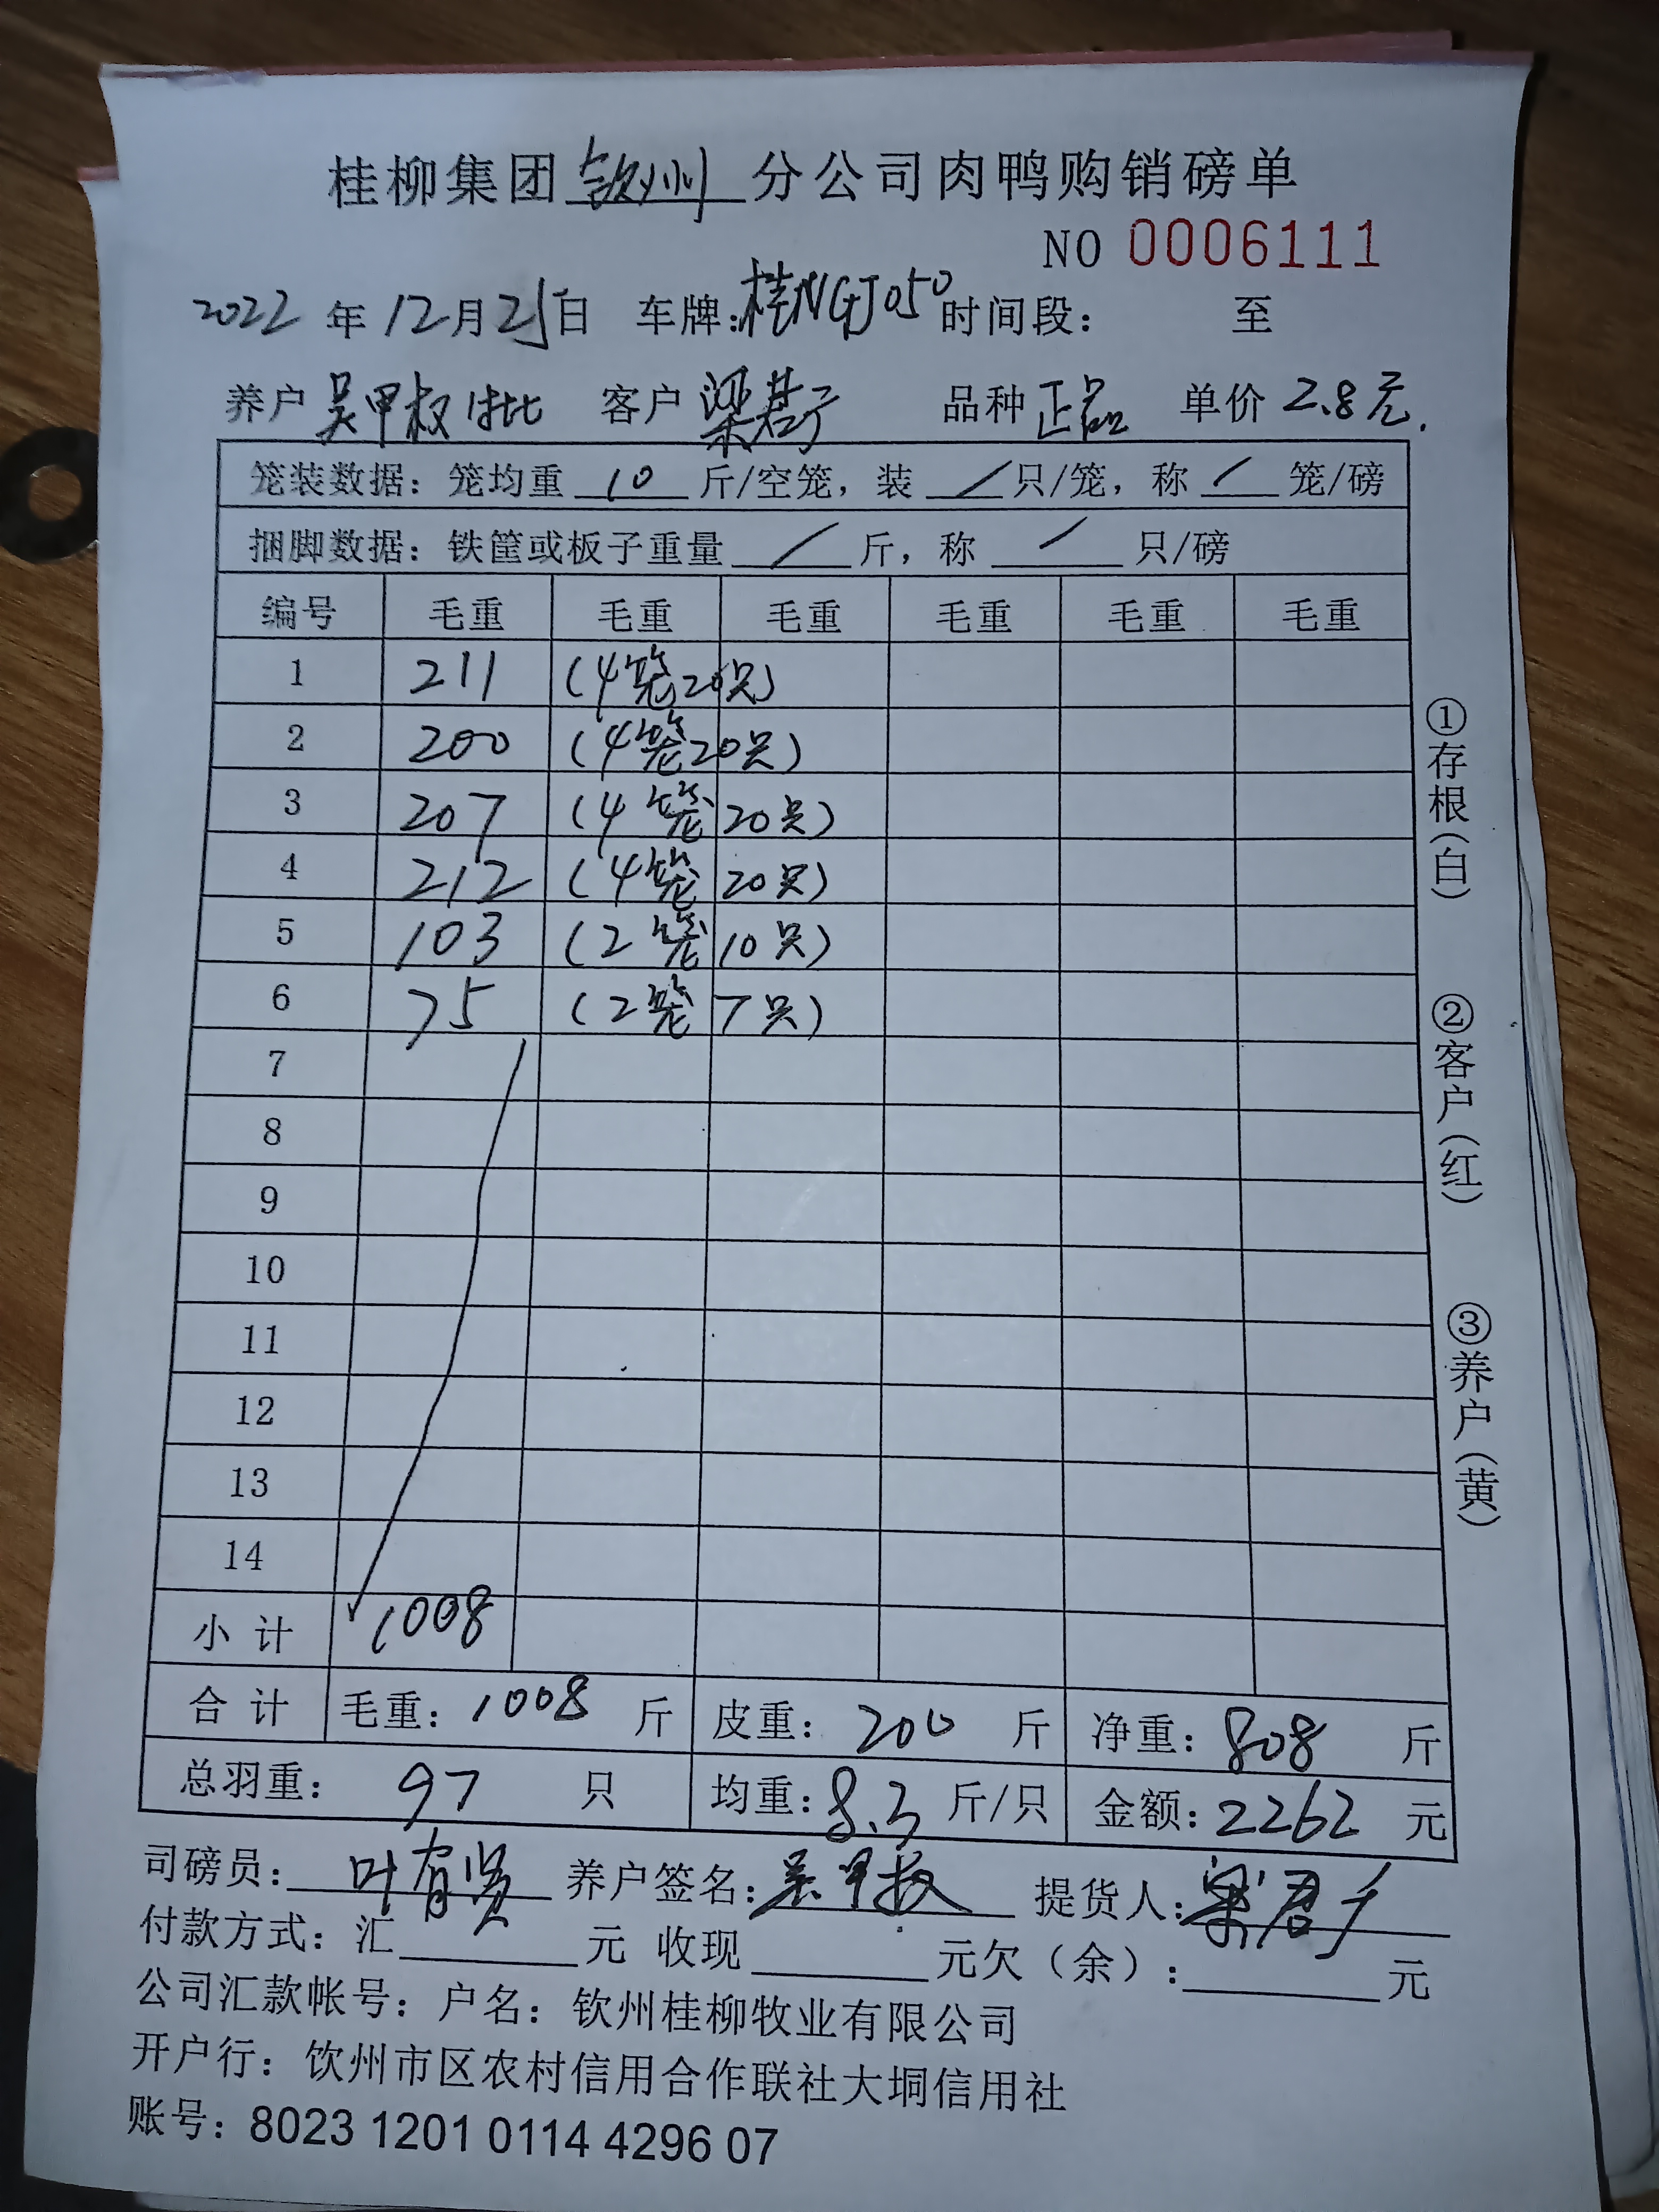 桂柳集团钦州分公司肉鸭购销磅单
NO 0006111
2022年12月25日 车牌:桂NGJ050 时间段: 至
养户 吴甲权 客户 梁君子 品种 正品 单价 2.8元.
笼装数据: 笼均重 10 斤/空笼, 装 / 只/笼, 称 / 笼/磅
捆脚数据: 铁筐或板子重量 / 斤, 称 / 只/磅
编号 毛重 毛重 毛重 毛重 毛重 毛重
1 211 (4笼20只)
2 200 (4笼20只)
3 207 (4笼20只)
4 212 (4笼20只)
5 103 (2笼10只)
6 75 (2笼7只)
7
8
9
10
11
12
13
14
小计 1008
合计 毛重: 1008 斤 皮重: 200 斤 净重: 808 斤
总羽重: 97 只 均重: 8.3 斤/只 金额: 2262 元
司磅员: 叶有贤 养户签名: 吴甲权 提货人: 梁君子
付款方式: 汇 元 收现 元欠(余): 元
公司汇款帐号: 户名: 钦州桂柳牧业有限公司
开户行: 钦州市区农村信用合作联社大垌信用社
账号: 8023 1201 0114 4296 07
①存根(白)
②客户(红)
③养户(黄)